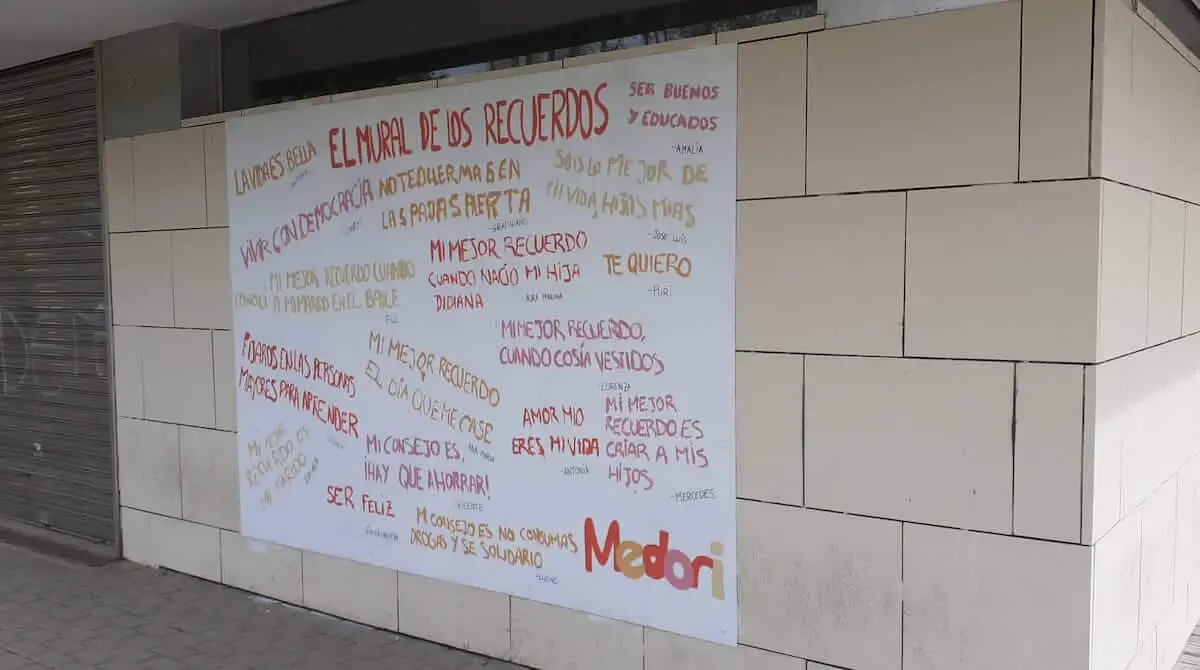 EL MURAL DE LOS RECUERDOS
SER BUENOS
Y EDUCADOS
-AMALIA
LA VIDA ES BELLA
VIVIR CON DEMOCRACIA
NO TE DUERMAS EN
LAS PAJAS AERTA
-GRATINIANO
SOIS LO MEJOR DE
MI VIDA, HIJOS MIAS
-JOSE LUIS
MI MEJOR RECUERDO CUANDO
CONOCI A MI MARIDO EN EL BAILE
FILI
MI MEJOR RECUERDO
CUANDO NACIO MI HIJA
DIDIANA
TE QUIERO
-PURI
MI MEJOR RECUERDO,
CUANDO COSÍA VESTIDOS
-LORENZA
FIJAROS EN LAS PERSONAS
MAYORES PARA APRENDER
MI MEJOR RECUERDO
EL DÍA QUE ME CASE
ANA MARIA
AMOR MIO
ERES MI VIDA
-ANTONIA
MI MEJOR
RECUERDO ES
CRIAR A MIS
HIJOS
-MERCEDES
MI MEJOR
RECUERDO ES
MI MARIDO
MI CONSEJO ES,
¡HAY QUE AHORRAR!
-VICENTE
SER FELIZ
MI CONSEJO ES NO CONSUMAS
DROGAS Y SE SOLIDARIO
Medori